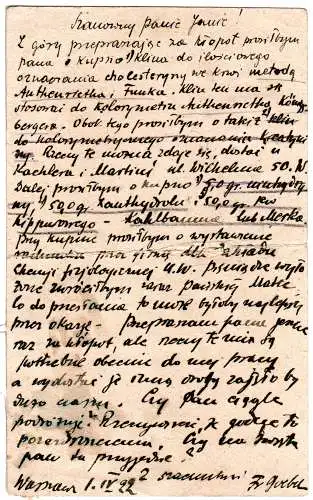 Szanowny Panie Janie!
Z góry przepraszając za kłopot prosiłbym
pana o kupno 1) klina do ilościowego
oznaczania cholesteryny we krwi metodą
Authenrietha i Funka. Klin ten ma się
stosować do kolorymetru Authenrietha Königs
bergera. Obok tego prosiłbym o także klin
do kolorymetrycznego oznaczania kreatyni
ny. Rzeczy te można zdaje się, dostać u
Kachlera i Martini ul. Wilhelma 50. W.
Dalej prosiłbym o kupno
ny 50,0 gr. xanthydrolu i 50,0 gr. kw
hippurowego - Kahlbauma lub Merka
Przy kupnie prosiłbym o wystawienie
rachunku przez firmę dla zakładu
Chemji fizjologicznej U.W. Pieniądze wyło
żone zwróciłbym zaraz pańskiej Matce
Co do przesłania to może byłoby najlepiej
przez okazję. Przepraszam pana jeszcze
raz za kłopot, ale rzeczy te mi są
potrzebne obecnie do mej pracy
a wydostać je inną drogą zajęło by
dużo czasu. Czy Pan ciągle
podróżuje? Przesyłam, je
pozdrowienia. Czy na święta
pan tu przyjedzie?
Warszawa 1.IV 22